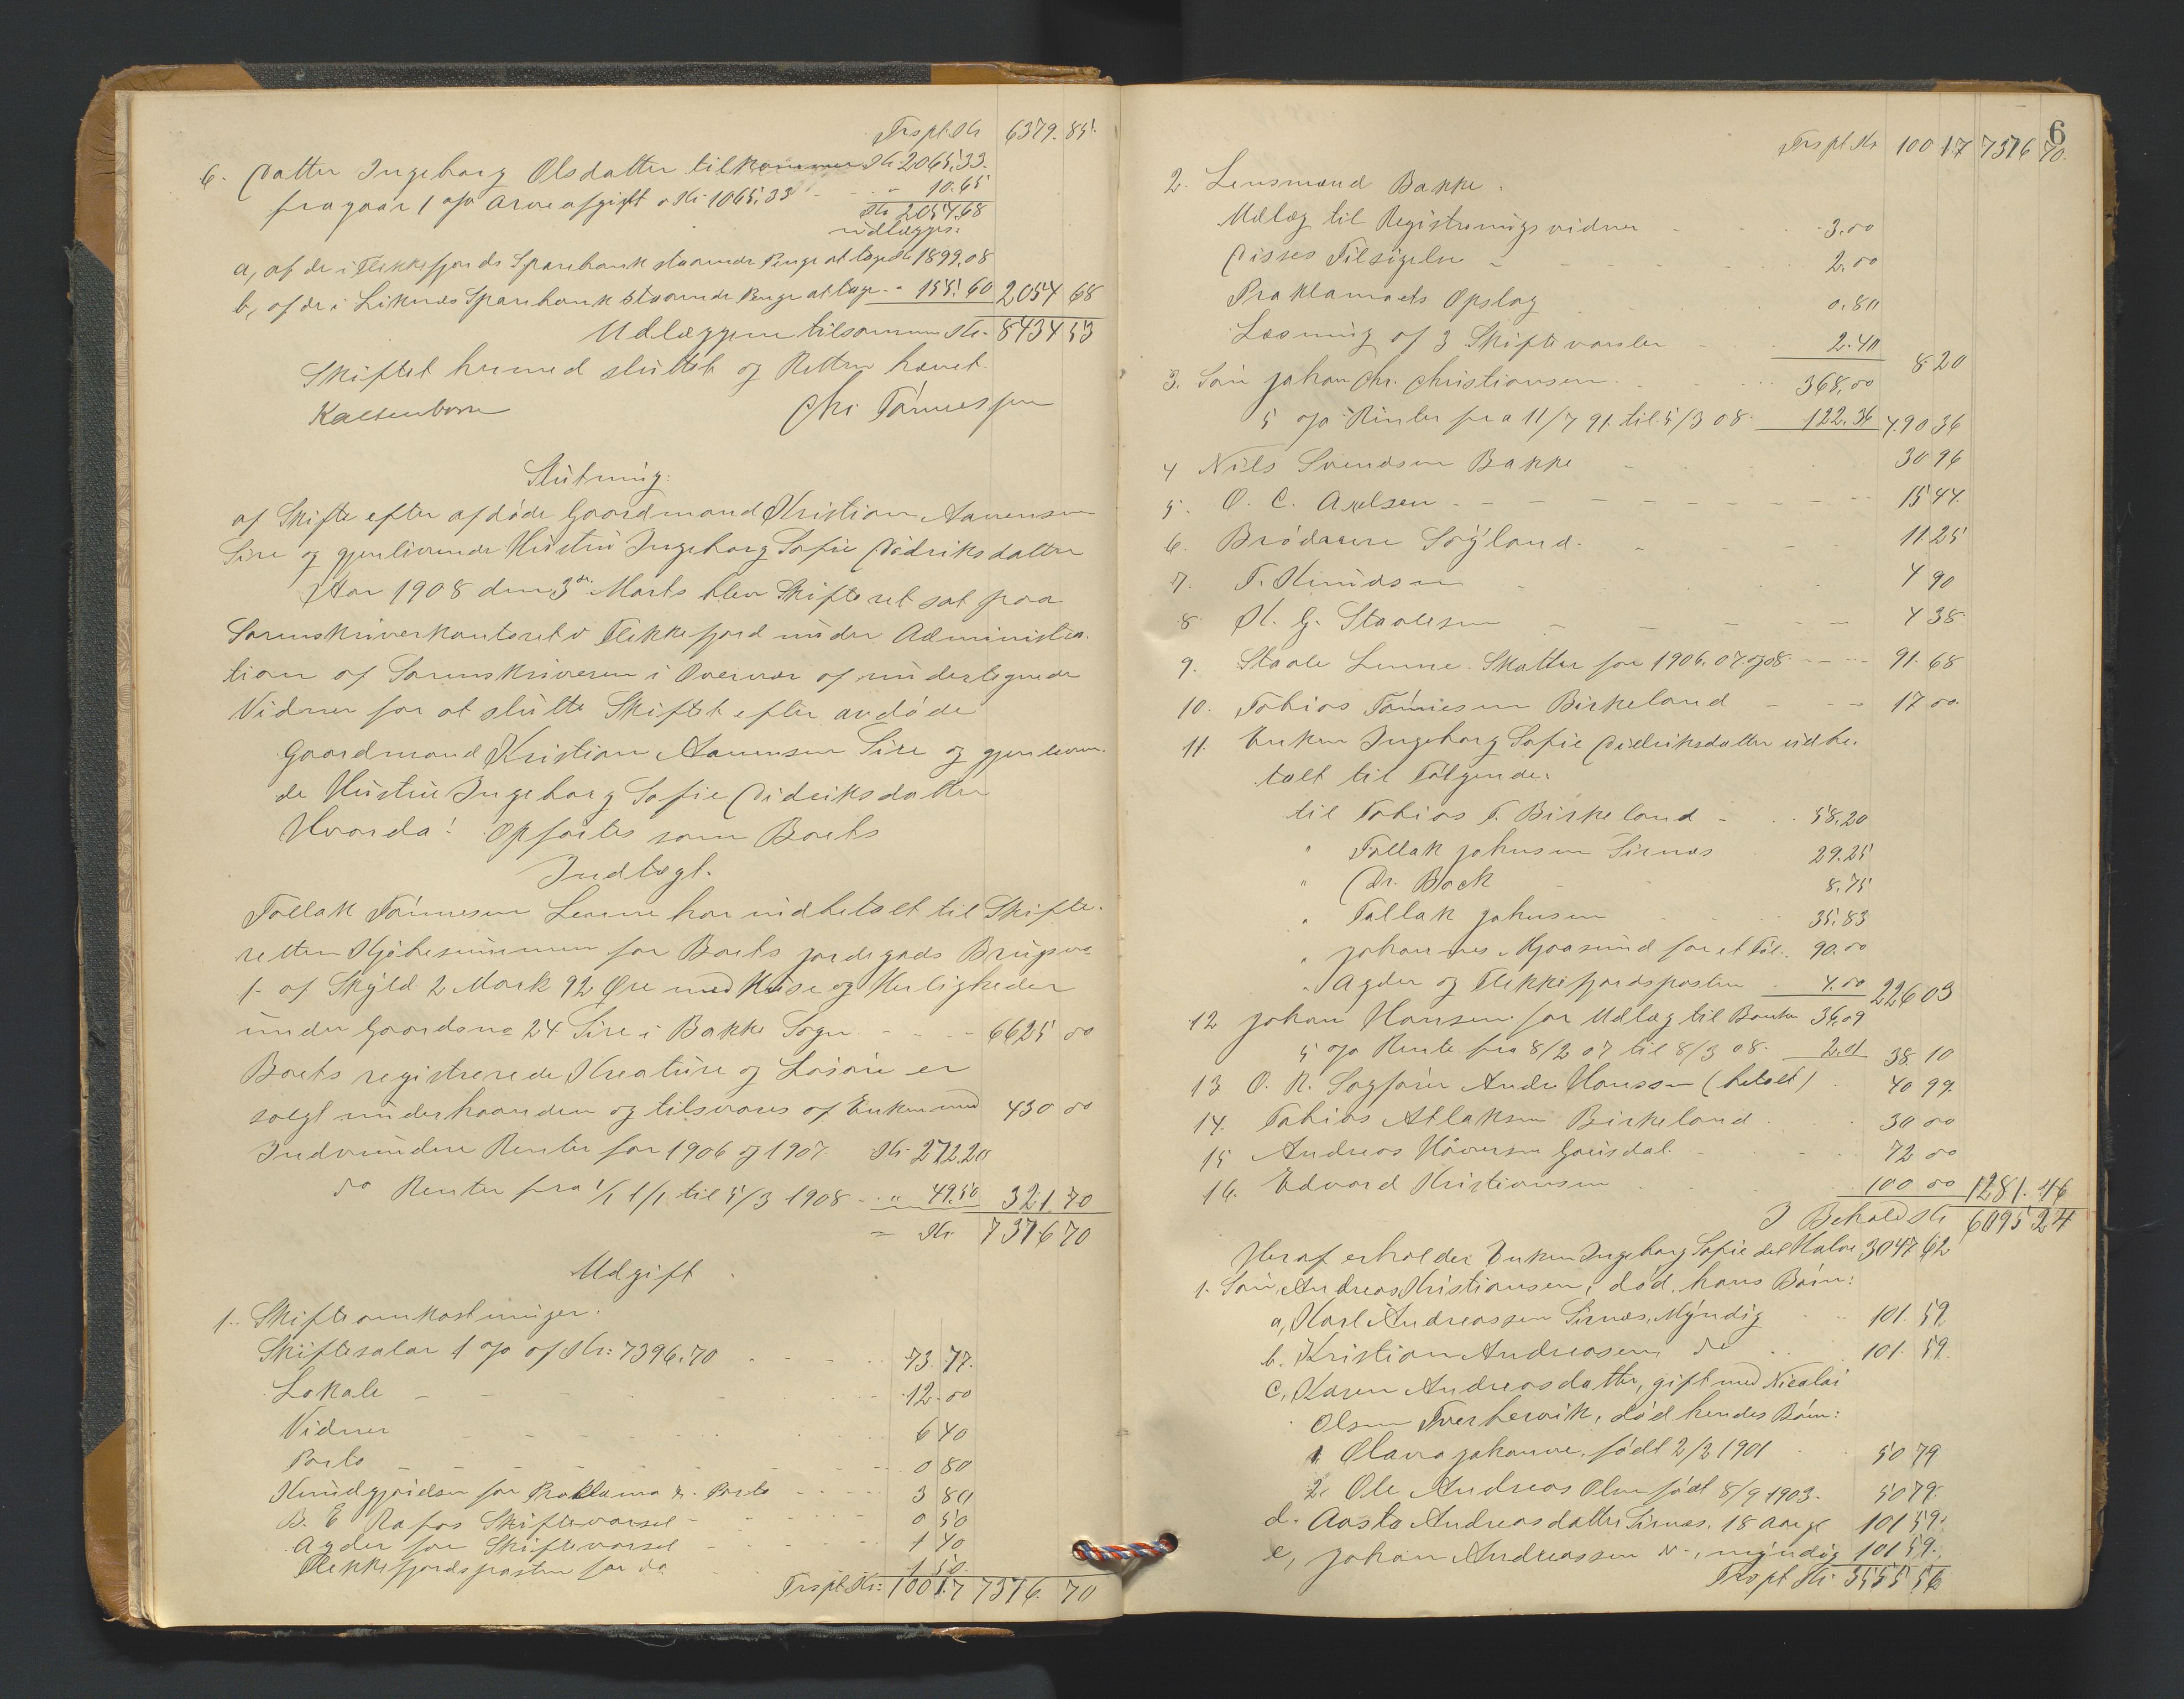 Trspt. Kr. 6379.85.
6. Datter Ingeborg Olsdatter tilkommer Kr. 2065.33.
fragaar 1 o/o Arveafgift a Kr. 1065.33 - - - " 10.65
Kr. 2054.68
udlægges:
a, af de i Flekkefjords Sparebank staaende Penge at tage Kr 1899.08
b, af de i Liknæs Sparebank staaende Penge at tage - " 155.60 2054 68
Udlæggene tilsammen Kr. 8434 53
Skiftet hermed sluttet og Retten hævet.
Kaltenborn Chr. Tønnessen
Slutning:
af Skifte efter afdøde Gaardmand Kristian Aanensen
Sire og gjenlevende Hustru Ingeborg Sofie Didriksdatter
Aar 1908 den 3de Marts blev Skifteret sat paa
Sorenskriverkontoret i Flekkefjord under Administra-
tion af Sorenskriveren i Overvær af undertegnede
Vidner for at slutte Skiftet efter avdøde
Gaardmand Kristian Aanensen Sire og gjenleven-
de Hustru Ingeborg Sofie Didriksdatter
Hvorda: Opførtes som Boets
Indtægt.
Tollak Tønnesen Lenne har indbetalt til Skifte-
retten Kjøbesummen for Boets jordegods Brugsno
1. af Skyld 2 Mark 92 Øre med Huse og Herligheder
under Gaardsno 24 Sire i Bakke Sogn - - - 6625 00
Boets registrerede Kreature og Løsøre er
solgt underhaanden og tilsvares af Enken med 430 00
Indvundne Renter for 1906 og 1907 Kr. 272.20
do Renter fra 1/1 til 5/3 1908 - - " 49.50 321.70
= Kr. 7376 70
Udgift
1. Skifteomkostninger.
Skiftesalær 1 o/o af Kr: 7396.70 - - - - 73.77.
Lokale - - - 12.00
Vidner - - - 6 40
Porto - - - 0 80
Kundgjørelse for Proklama & Porto - - - 3 80
B. E. Rafos Skiftevarsel - - - 0 50
Agder for Skiftevarsel - - - 1 40
Flekkefjordsposten for do - - 1 50
Trspt. Kr: 100 17 7376. 70
6
Trspt Kr 100 17 7376 70.
2. Lensmand Bakke.
Udlæg til Registreringsvidner - - - 3.00
Disses Tilsigelse - - - 2.00
Proklamaets Opslag 0.80
Læsning af 3 Skiftevarsler - - 2.40 8 20
3. Søn Johan Chr. Christiansen. - - - 368.00
5 o/o Renter fra 11/7 91. til 5/3 08. 122.36 490 36
4 Nils Svendsen Bakke - - 30 96
5. O. C. Axelsen - - - 15 44.
6. Brødrene Søyland. - - - 11 25
7. T. Knudsen - - 4 90
8 K. G. Staalesen - - - 4 38
9. Staale Lenne. Skatter for 1906. 07 og 08 - - - 91. 68
10. Tobias Tønnesen Birkeland - - - 17 00.
11. Enken Ingeborg Sofie Didriksdatter udbe-
talt til Følgende:
til Tobias T. Birkeland - 58.20
" Tollak Johnsen Sirnæs 29.25
" Dr. Bock - - 8.75
" Tallak Johnsen - - 35.83
" Johannes Mjaasund for et Føl. 90.00
" Agder og Flekkefjordsposten 4.00 226 03
12 Johan Hansen for Udlæg til Banken 36.09
5 o/o Rente fra 8/2 07 til 8/3 08. 2.01 38. 10
13. O. R. Sagfører Andr. Hanssen (betalt) 40 99.
14. Tobias Atlaksen Birkeland - - - 30 00
15 Andreas Haaversen - - - 72 00
16. Edvard Kristiansen 100 00 1281. 46
I Behold Kr 6095 24
Heraf erholder Enken Ingeborg Sofie det Halve 3047 62
1. Søn, Andreas Kristiansen, død, hans Børn:
a, Karl Andreassen Sirnæs, Myndig - 101. 59
b. Kristian Andreasen, do - 101. 59.
c, Karen Andreasdatter, gift med Nicolai
Olsen, død hendes Børn:
1. Olava Johanne, født 2/2 1901 50 79
2. Ole Andreas Olsen født 8/9 1903. 50 79.
d. Aasta Andreasdatter Sirnæs, 18 Aar gl 101 59.
e, Johan Andreassen -, myndig 101 59.
Trspt Kr 3555 56